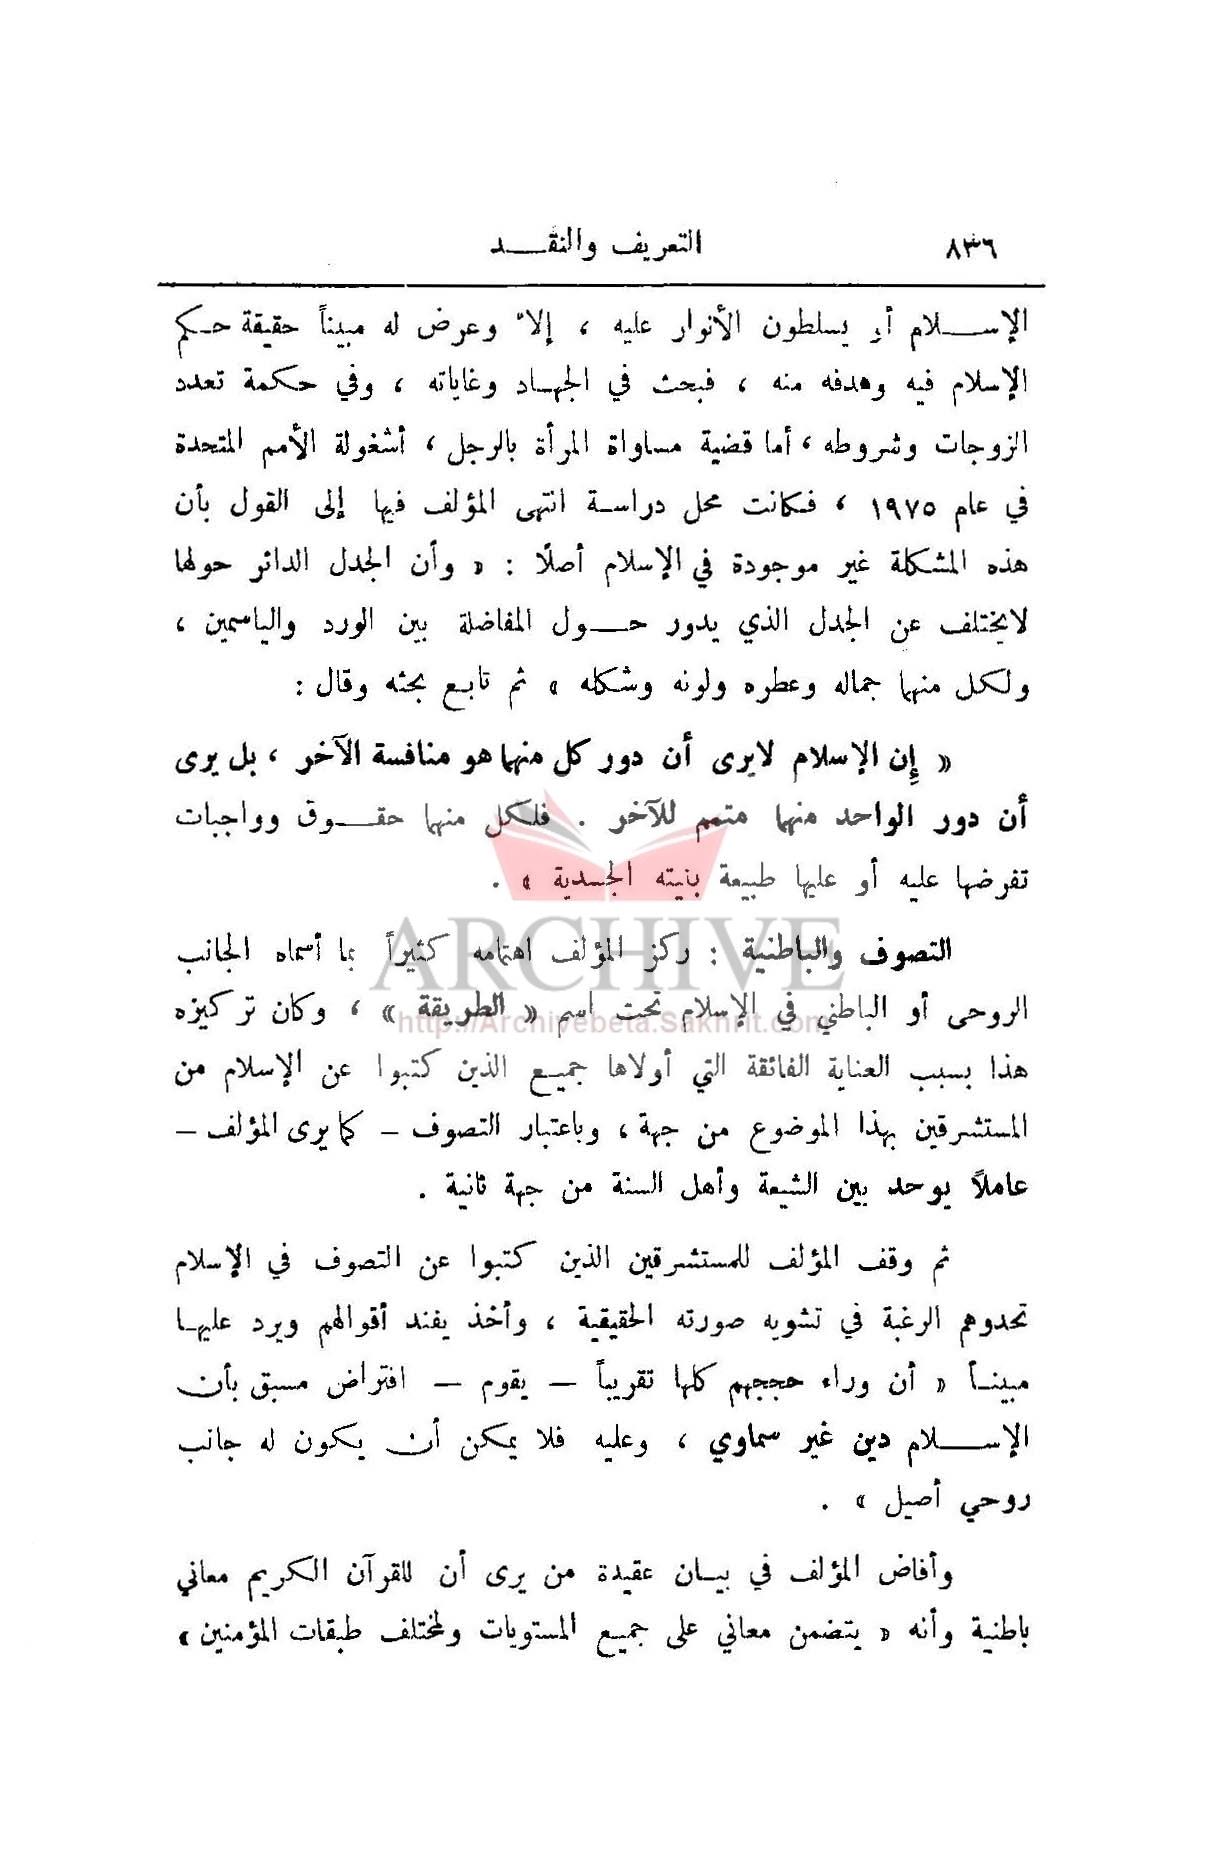 ٨٣٦ التعريف والنقد
الإسلام أو يسلطون الأنوار عليه ، إلا وعرض له مبيناً حقيقة حكم
الإسلام فيه وهدفه منه ، فبحث في الجهاد وغاياته ، وفي حكمة تعدد
الزوجات وشروطه ، أما قضية مساواة المرأة بالرجل ، أشغولة الأمم المتحدة
في عام ١٩٧٥ ، فكانت محل دراسة انتهى المؤلف فيها إلى القول بأن
هذه المشكلة غير موجودة في الإسلام أصلًا : « وأن الجدل الدائر حولها
لايختلف عن الجدل الذي يدور حول المفاضلة بين الورد والياسمين ،
ولكل منهما جماله وعطره ولونه وشكله » ثم تابع بحثه وقال :
« إن الإسلام لايرى أن دور كل منهما هو منافسة الآخر ، بل يرى
أن دور الواحد منهما متمم للآخر . فلكل منهما حقوق وواجبات
تفرضها عليه أو عليها طبيعة بنيته الجسدية » .
ARCHIVE
التصوف والباطنية : ركز المؤلف اهتمامه كثيراً بما أسماه الجانب
الروحى أو الباطني في الإسلام تحت اسم « الطريقة » ، وكان تركيزه
http://Archivebeta.Sakhrit.com
هذا بسبب العناية الفائقة التي أولاها جميع الذين كتبوا عن الإسلام من
المستشرقين بهذا الموضوع من جهة ، وباعتبار التصوف – كما يرى المؤلف –
عاملاً يوحد بين الشيعة وأهل السنة من جهة ثانية .
ثم وقف المؤلف للمستشرقين الذين كتبوا عن التصوف في الإسلام
تحدوهم الرغبة في تشويه صورته الحقيقية ، وأخذ يفند أقوالهم ويرد عليها
مبيناً « أن وراء حججهم كلها تقريباً – يقوم – افتراض مسبق بأن
الإسلام دين غير سماوي ، وعليه فلا يمكن أن يكون له جانب
روحي أصيل » .
وأفاض المؤلف في بيان عقيدة من يرى أن للقرآن الكريم معاني
باطنية وأنه « يتضمن معاني على جميع المستويات ولمختلف طبقات المؤمنين »